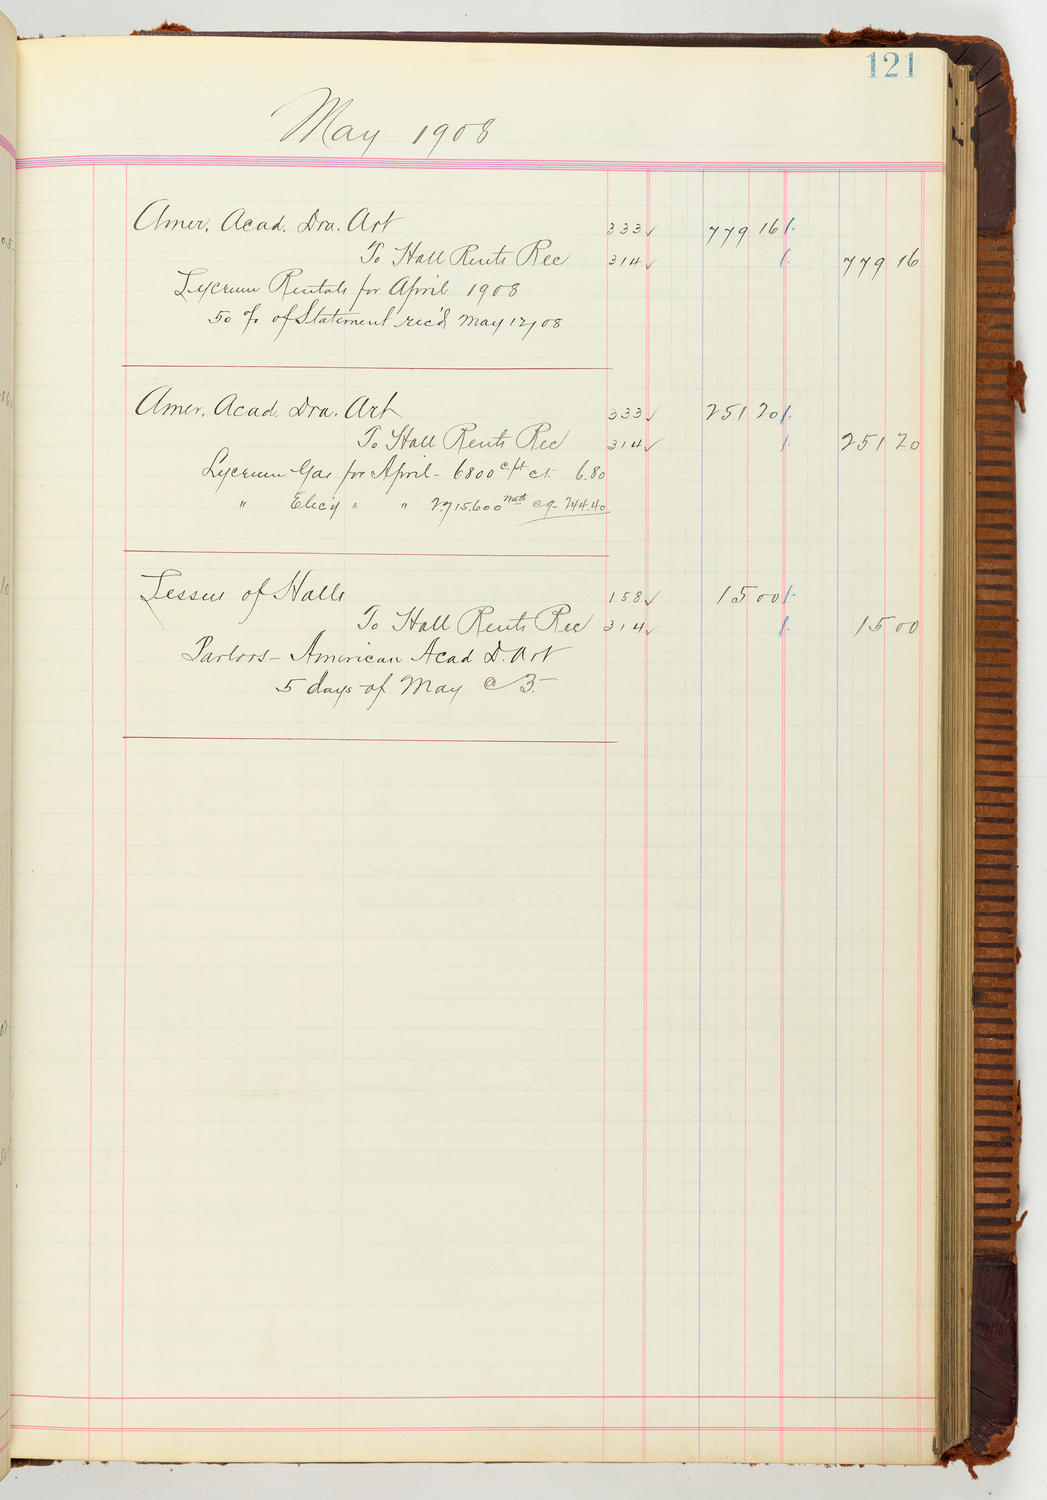 121
May 1908
Amer. Acad. Dra. Art 333 ✓ 779 16
To Hall Rents Rec 314 ✓ 779 16
Lyceum Rentals for April 1908
50 % of Statement rec'd May 12/08
Amer. Acad. Dra. Art 333 ✓ 251 20
To Hall Rents Rec 314 ✓ 251 20
Lyceum Gas for April - 6800 c.ft c1. 6.80
" Elec'y " " 2.715.600 watts c9- 244.40
Lessee of Halls 158 ✓ 15 00
To Hall Rents Rec 314 ✓ 15 00
Parlors - American Acad D. Art
5 days of May @ 3.-